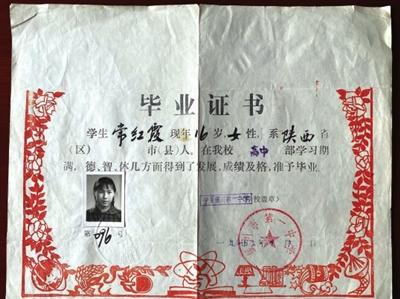 毕业证书
学生常红霞现年16岁,女性,系陕西省
(区) 市(县)人。在我校高中部学习期
满,德、智、体几方面得到了发展,成绩及格,准予毕业。
校(盖章)
第096号